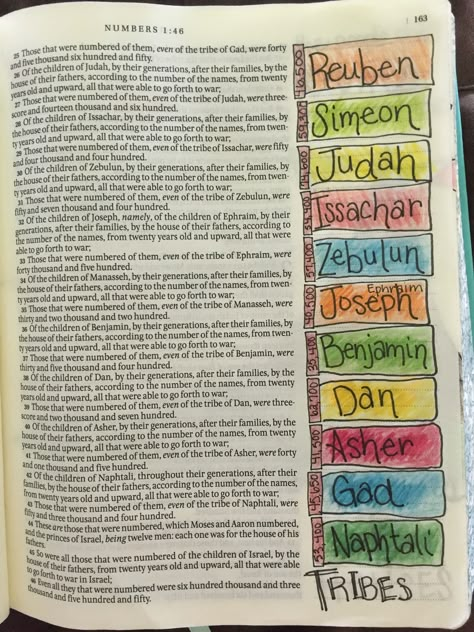 NUMBERS 1:46
163
25 Those that were numbered of them, even of the tribe of Gad, were forty
and five thousand six hundred and fifty.
26 Of the children of Judah, by their generations, after their families, by the
house of their fathers, according to the number of the names, from twenty
years old and upward, all that were able to go forth to war;
27 Those that were numbered of them, even of the tribe of Judah, were three-
score and fourteen thousand and six hundred.
28 Of the children of Issachar, by their generations, after their families, by
the house of their fathers, according to the number of the names, from twen-
ty years old and upward, all that were able to go forth to war;
29 Those that were numbered of them, even of the tribe of Issachar, were fifty
and four thousand and four hundred.
30 Of the children of Zebulun, by their generations, after their families, by
the house of their fathers, according to the number of the names, from twen-
ty years old and upward, all that were able to go forth to war;
31 Those that were numbered of them, even of the tribe of Zebulun, were
fifty and seven thousand and four hundred.
32 Of the children of Joseph, namely, of the children of Ephraim, by their
generations, after their families, by the house of their fathers, according to
the number of the names, from twenty years old and upward, all that were
able to go forth to war;
33 Those that were numbered of them, even of the tribe of Ephraim, were
forty thousand and five hundred.
34 Of the children of Manasseh, by their generations, after their families, by
the house of their fathers, according to the number of the names, from twen-
ty years old and upward, all that were able to go forth to war;
35 Those that were numbered of them, even of the tribe of Manasseh, were
thirty and two thousand and two hundred.
36 Of the children of Benjamin, by their generations, after their families, by
the house of their fathers, according to the number of the names, from twen-
ty years old and upward, all that were able to go forth to war;
37 Those that were numbered of them, even of the tribe of Benjamin, were
thirty and five thousand and four hundred.
38 Of the children of Dan, by their generations, after their families, by the
house of their fathers, according to the number of the names, from twenty
years old and upward, all that were able to go forth to war;
39 Those that were numbered of them, even of the tribe of Dan, were three-
score and two thousand and seven hundred.
40 Of the children of Asher, by their generations, after their families, by the
house of their fathers, according to the number of the names, from twenty
years old and upward, all that were able to go forth to war;
41 Those that were numbered of them, even of the tribe of Asher, were forty
and one thousand and five hundred.
42 Of the children of Naphtali, throughout their generations, after their
families, by the house of their fathers, according to the number of the names,
from twenty years old and upward, all that were able to go forth to war;
43 Those that were numbered of them, even of the tribe of Naphtali, were
fifty and three thousand and four hundred.
44 These are those that were numbered, which Moses and Aaron numbered,
and the princes of Israel, being twelve men: each one was for the house of his
fathers.
45 So were all those that were numbered of the children of Israel, by the
house of their fathers, from twenty years old and upward, all that were able
to go forth to war in Israel;
46 Even all they that were numbered were six hundred thousand and three
thousand and five hundred and fifty.
46,500 Reuben
59,300 Simeon
74,600 Judah
54,400 Issachar
57,400 Zebulun
Ephraim
40,500 Joseph
35,400 Benjamin
62,700 Dan
41,500 Asher
45,650 Gad
53,400 Naphtali
TRIBES